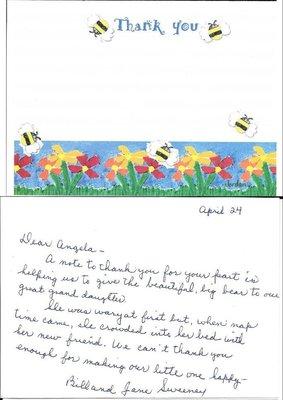 Thank you
April 24
Dear Angela-
A note to thank you for your part in
helping us to give the beautiful, big bear to our
great grand daughter
She was wary at first but, when nap
time came, she crowded into her bed with
her new friend. We can't thank you
enough for making our little one happy-
Bill and Jane Sweeney